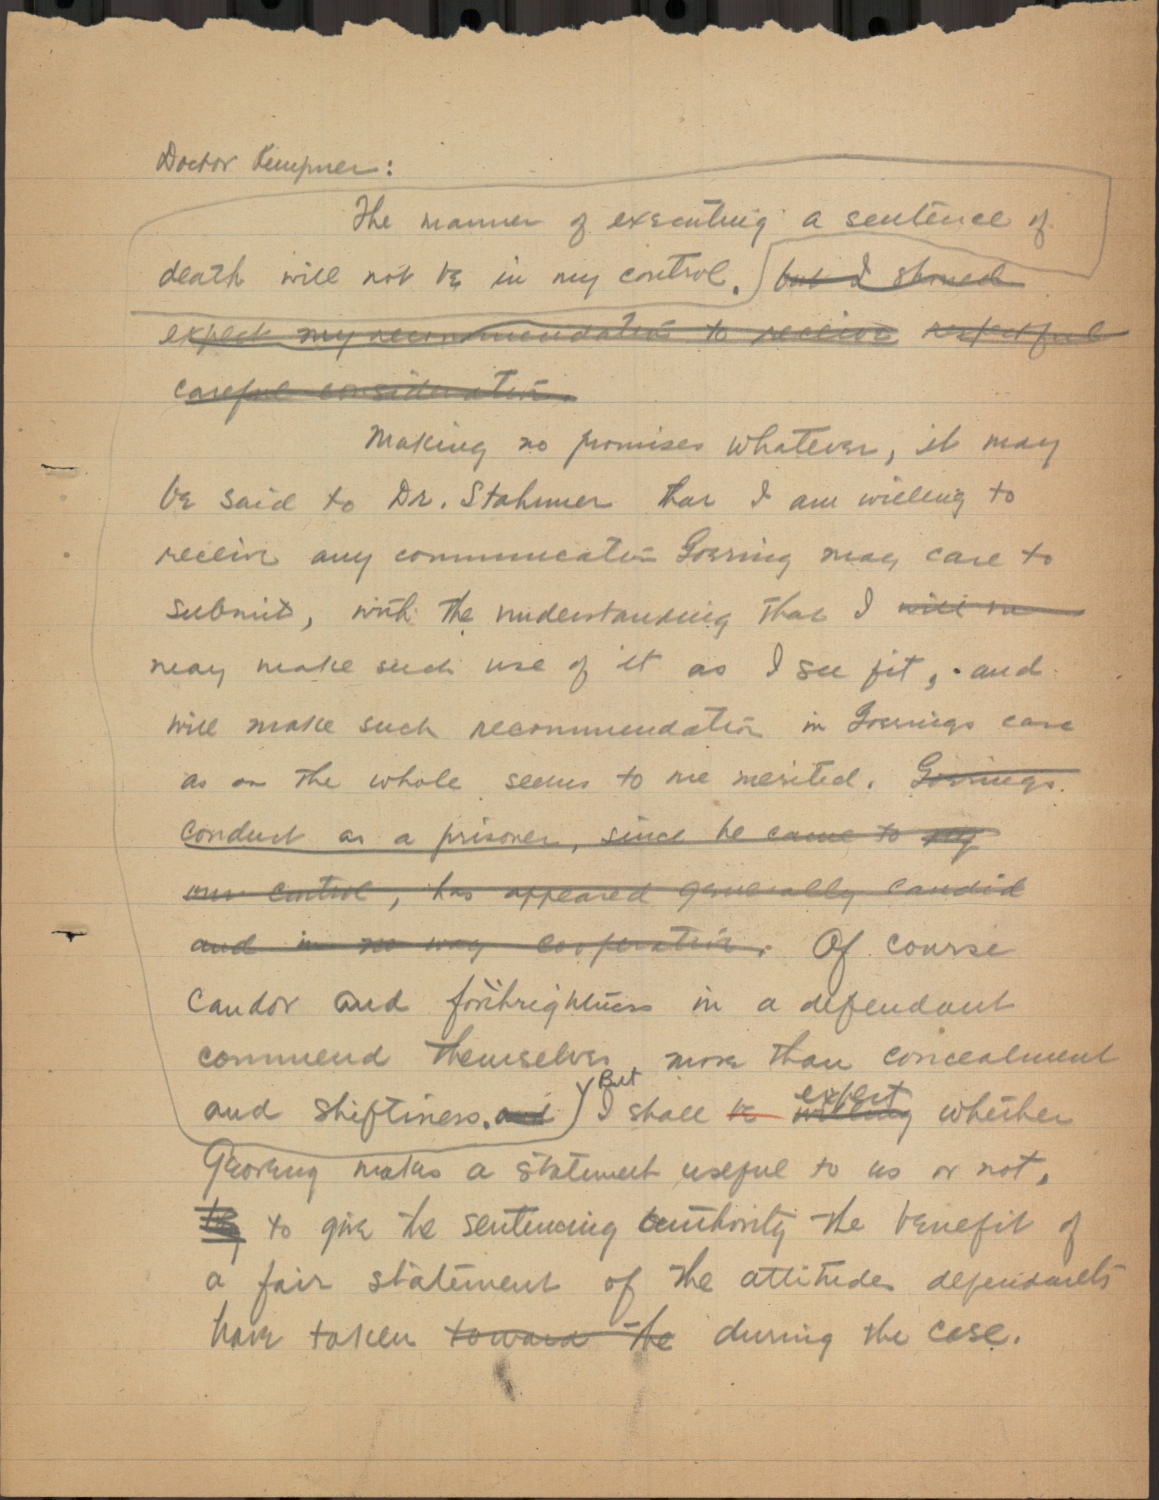 Doctor Kempner:
The manner of executing a sentence of
death will not be in my control. but I should
expect my recommendation to receive respectful
careful consideration.
Making no promises whatever, it may
be said to Dr. Stahmer that I am willing to
receive any communication Goering may care to
submit, with the understanding that I will
may make such use of it as I see fit, and
will make such recommendation in Goerings case
as on the whole seems to me merited. Goerings
conduct as a prisoner, since he came to my
our control, has appeared generally candid
and in no way cooperative. Of course
candor and forthrightness in a defendant
commend themselves more than concealment
But expect
and shiftiness. and I shall be willing whether
Goering makes a statement useful to us or not,
to give the sentencing authority the benefit of
a fair statement of the attitudes defendants
have taken toward the during the case.